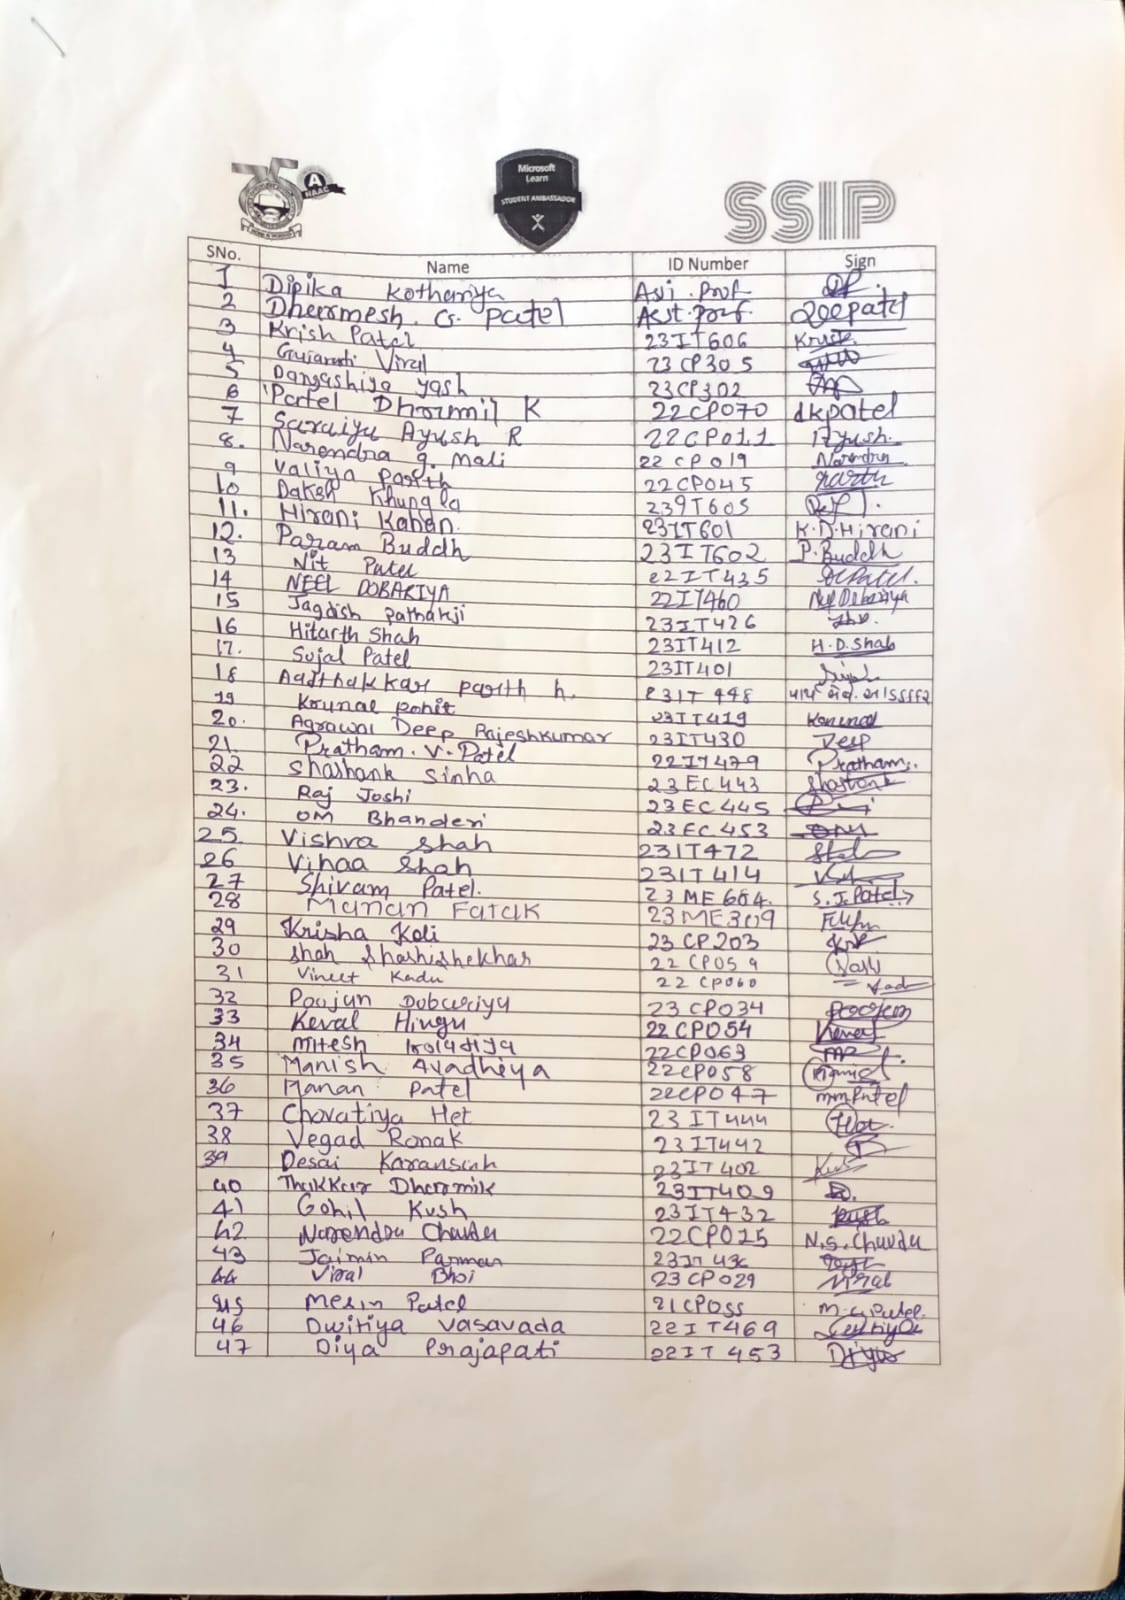 A
NAAC
Microsoft
Learn
STUDENT AMBASSADOR
SSIP
SNo. Name ID Number Sign
1 Dipika Kotheriya Asi. Prof
2 Dhermesh. G. Patel Asst. Prof. Dgepatel
3 Krish Patel 23IT606 Krish
4 Gujarati Viral 23CP305
5 Dangashiya Yash 23CP302
6 Patel Dharmil K 22CP070 dkpatel
7 Saraiya Ayush R 22CP011 Ayush.
8. Narendra g. Mali 22CP019 Narendra
9 Valiya Parth 22CP045 Parth
10 Daksh Khungla 239T605
11. Hirani Kahan 23IT601 K.D.Hirani
12. Param Buddh 23IT602 P.Buddh
13 Nit Patel 22IT435
14 NEEL DOBARIYA 22IT460 Neel Dobariya
15 Jagdish Pathakji 23IT426
16 Hitarth Shah 23IT412 H.D.Shah
17. Sujal Patel 23IT401 Sujal
18 Aadthakkar Parth h. 23IT448
19 Krunal Rohit 23IT419
20. Agrawal Deep Rajeshkumar 23IT430 Deep
21. Pratham.V.Patel 22IT479 Pratham.
22 Shashank Sinha 23EC443 Shashank
23. Raj Joshi 23EC445
24. OM Bhanderi 23EC453
25. Vishva Shah 23IT472
26 Vihaa Shah 23IT414
27 Shivam Patel. 23ME604. S.J.Patel
28 Manan Fatak 23ME309
29 Krisha Koli 23CP203
30 Shah Shashishekhar 22CP059
31 Vineet Kadu 22CP060
32 Poojan Dobariya 23CP034 Poojan
33 Keval Hingu 22CP054 Keval
34 Mitesh 22CP063
35 Manish Avadhiya 22CP058 Manish
36 Manan Patel 22CP047 mmPatel
37 Chovatiya Het 23IT444 Het
38 Vegad Ronak 23IT442
39 Desai Karansinh 23IT402
40 Thakkar Dharmik 23IT409
41 Gohil Kush 23IT432 Kush
42 Narendra Chavda 22CP015 N.S.Chavda
43 Jaimin Parmar
44 Viral Bhoi 23CP029 Viral
45 Merin Patel 21CP055 M.G.Patel.
46 Dwitiya Vasavada 22IT469
47 Diya Prajapati 22IT453 Diya